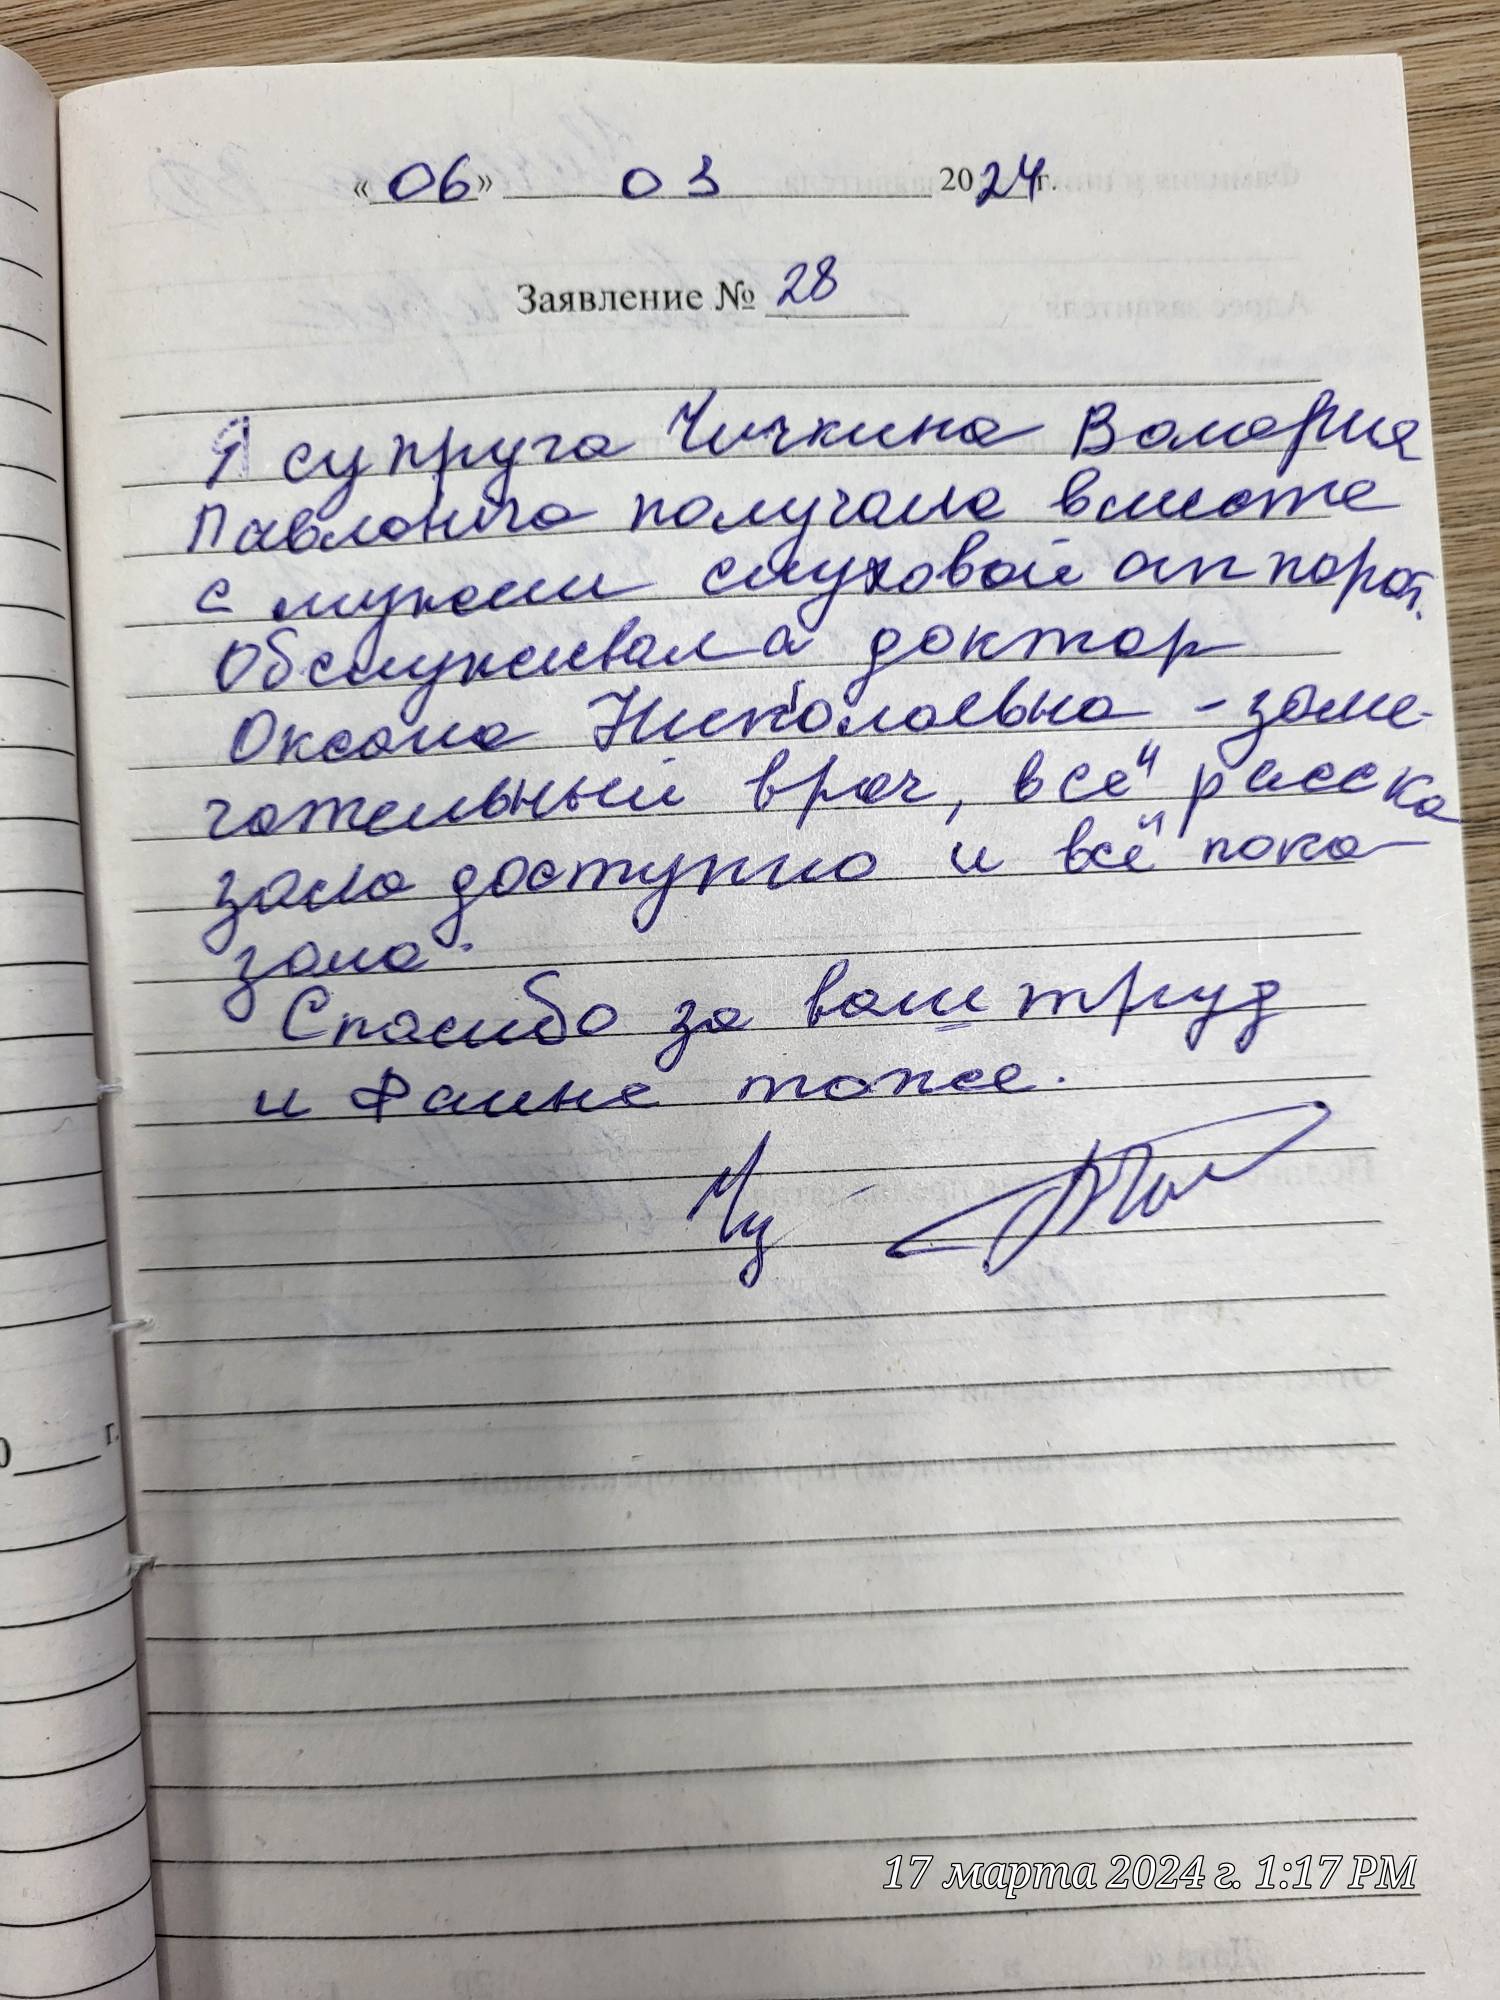 «06» 03 2024г.
Заявление № 28
Я супруга Чичкина Валерия
Павловича получала вместе
с мужем слуховой аппарат.
Обслуживала доктор
Оксана Николаевна - заме-
чательный врач, всё расска
зала доступно и всё пока-
зала.
Спасибо за ваш труд
и Фаине тоже.
0 г.
17 марта 2024 г. 1:17 PM